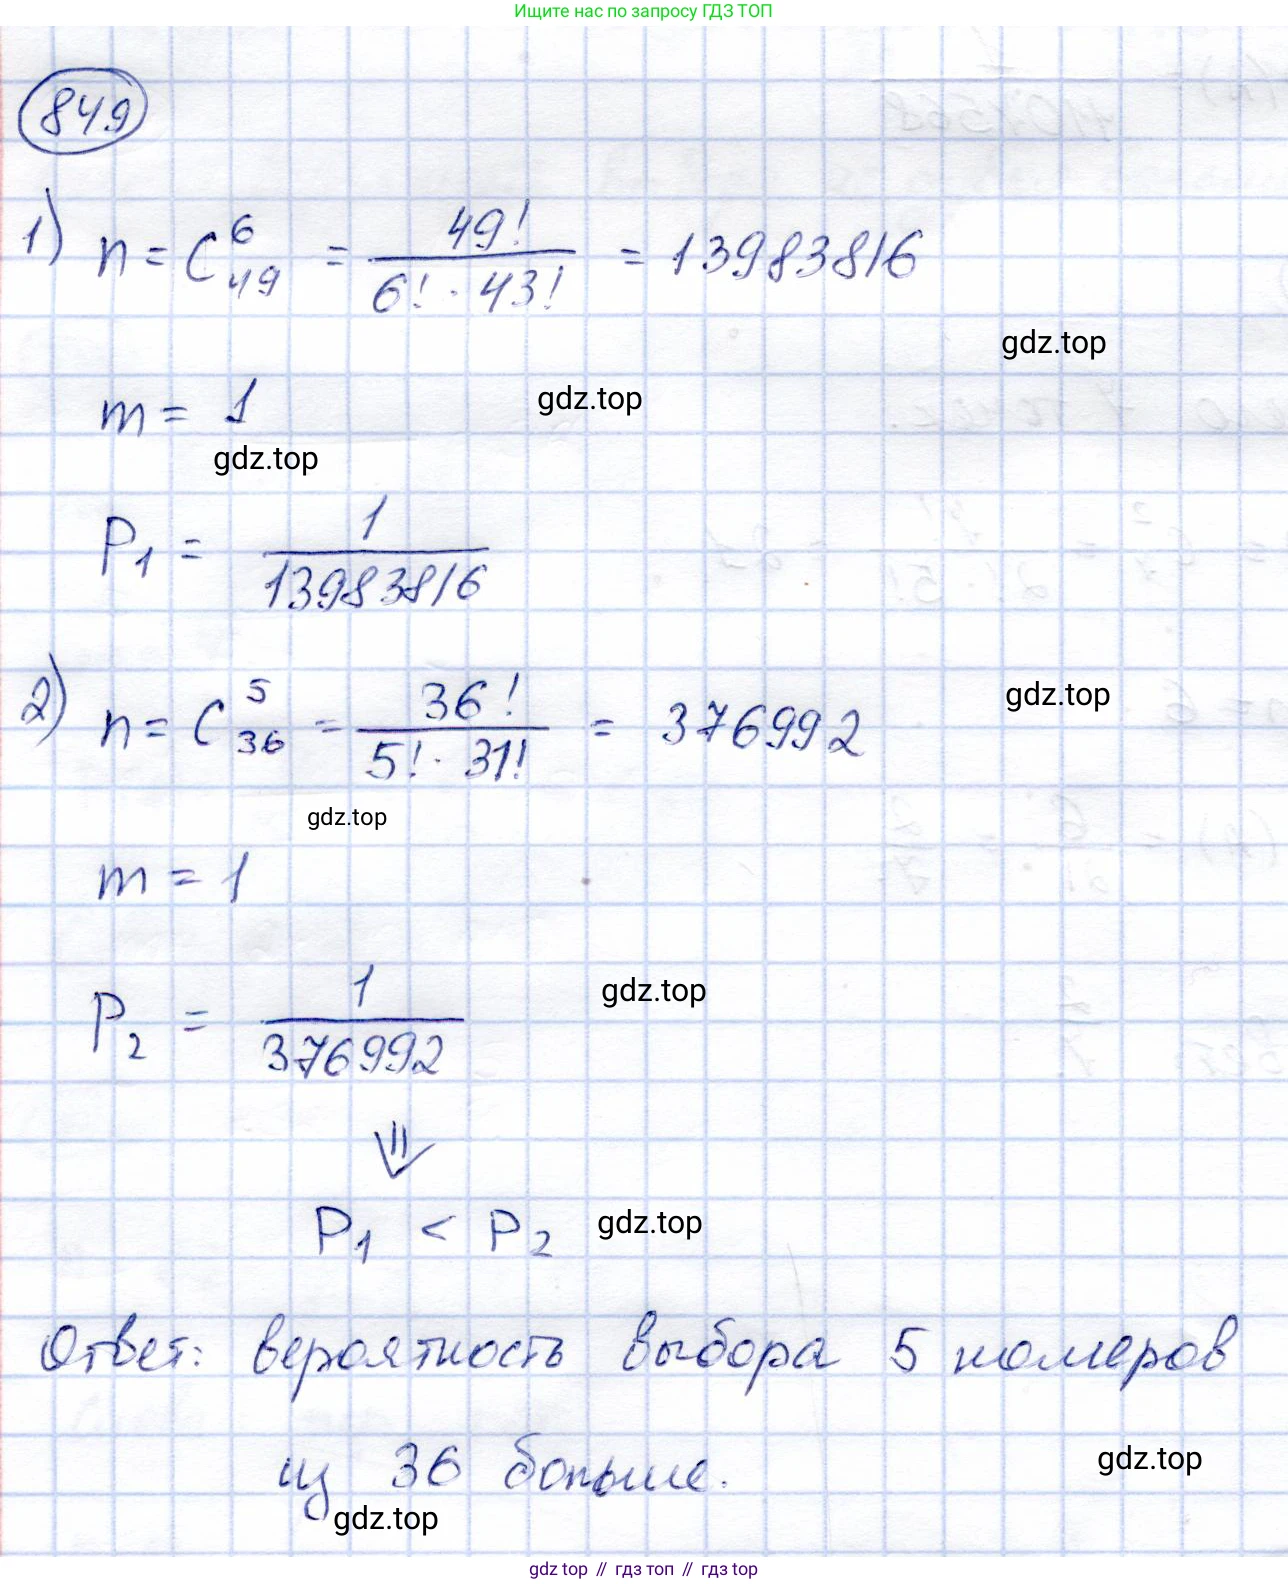 Ищите нас по запросу ГДЗ ТОП
849
1) n = C₄₉⁶ = 49! / (6! · 43!) = 13983816
gdz.top
gdz.top
m = 1
gdz.top
P₁ = 1 / 13983816
2) n = C₃₆⁵ = 36! / (5! · 31!) = 376992
gdz.top
gdz.top
m = 1
gdz.top
P₂ = 1 / 376992
⇓
P₁ < P₂
gdz.top
Ответ: вероятность выбора 5 номеров
из 36 больше.
gdz.top
gdz.top
gdz top // гдз топ // gdz top